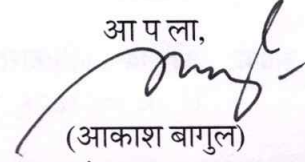 आ प ला,
(आकाश बागुल)